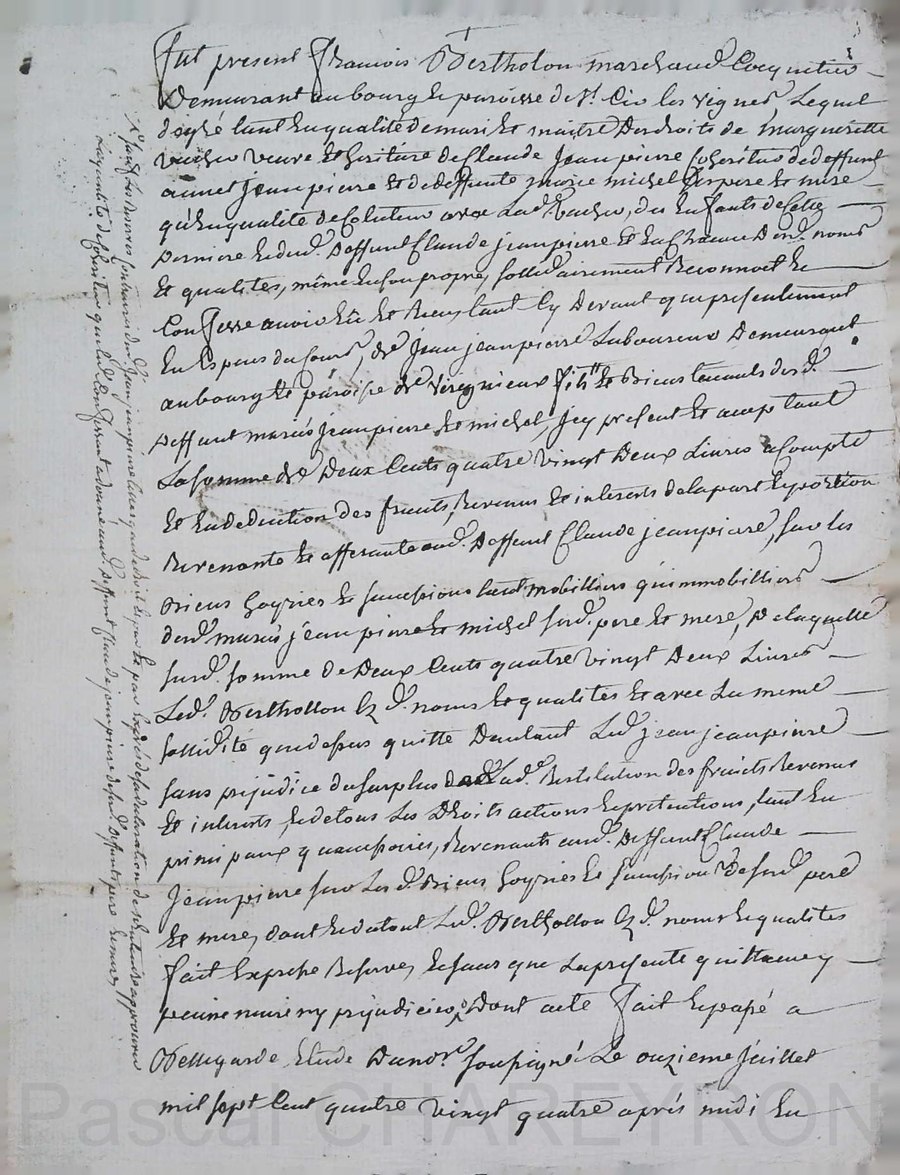 fut present francois Bertholon marchand Cocquetier
Demeurant au bourg & paroisse de St. Cir les vignes, Lequel
degré tant en qualité de mari & maitre Des droits de Margueritte
vacher veuve & heritiere de Claude Jeanpierre Coheritier de deffunt
annet jeanpierre & de deffunte marie michel ses pere & mere
qu'En qualité de Cotuteur avec Lad. vacher, des Enfants de Cette
Derniere & dud. Deffunt Claude jeanpierre & En Chacun Desd. noms
et qualités, même En son propre, sollidairement Reconnoit &
Confesse avoir Eû & Reçu, tant Cy Devant que presentement
En Espèces du Cours, de Jean jeanpierre Laboureur Demeurant
au bourg & paroisse de virignieux & Biens tenants desd.
Deffunt mariés jeanpierre & michel, Icy present & acceptant
La somme de Deux Cents quatre vingt Deux Livres a Compte
et En deduction des fruits, Revenus & interets de la part & portion
Revenante & afferante aud. Deffunt Claude jeanpierre, sur les
Biens hoyries & successions tant mobilliers qu'immobilliers
desd. mariés jeanpierre & michel sesd. pere & mere, De laquelle
susd. somme de Deux Cents quatre vingt Deux Livres
Led. Berthollon Ez d. noms & qualités & avec La meme
sollidité que dessus quitte Dautant Led. jean jeanpierre
sans prejudice du surplus de Lad. Restitution des fruits Revenus
et interets, & de tous Les Droits actions & pretentions, tant En
principaux qu'accessoires, Revenants aud. Deffunt Claude
Jeanpierre sur Lesd. Biens hoyries & successions De sesd. pere
et mere, dont & du tout Led. Berthollon Ez d. noms & qualités
fait Expresse Reserve, & sans que La presente quittance y
puisse nuire ny prejudicier, Dont acte fait & passé a
Bellegarde Etude Du nore. soussigné Le onzieme juillet
mil sept Cent quatre vingt quatre après midi En
sauf les Reserves Contraires dud. jean jeanpierre
La qualité de Coheritier qu'en Conferant a donné aud. deffunt Claude jeanpierre desd. deffunts pere & mere
Pascal CHAREYRON